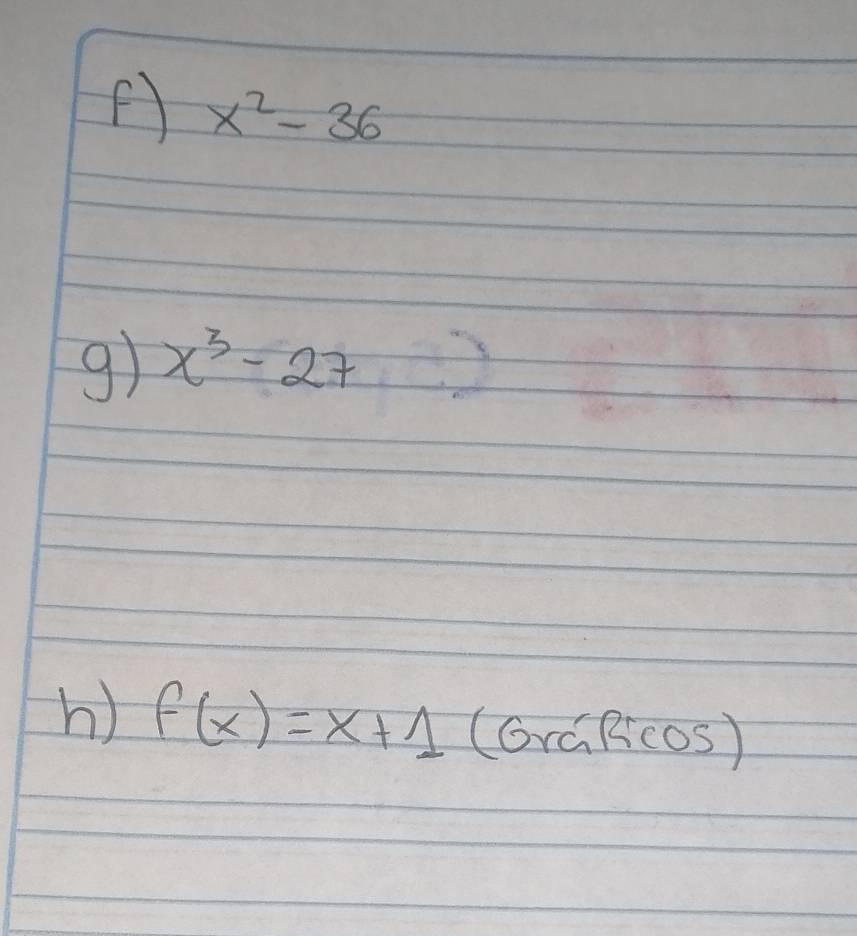 f) x² - 36
g) x³ - 27
h) f(x) = x + 1 (Gráficos)